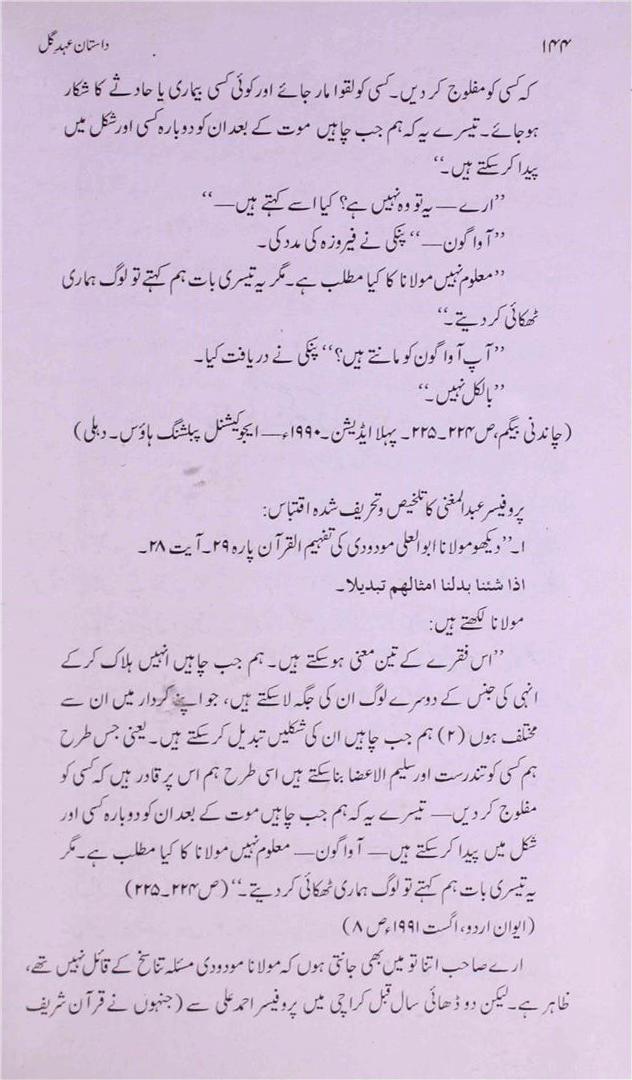 ۱۴۴ داستان عہدِ گل
کہ کسی کو مفلوج کر دیں۔ کسی کو لقوا مار جائے اور کوئی کسی بیماری یا حادثے کا شکار
ہو جائے۔ تیسرے یہ کہ ہم جب چاہیں موت کے بعد ان کو دوبارہ کسی اور شکل میں
پیدا کر سکتے ہیں۔‘‘
’’ارے — یہ تو وہ نہیں ہے؟ کیا اسے کہتے ہیں —‘‘
’’آواگون —‘‘ پنکی نے فیروزہ کی مدد کی۔
’’معلوم نہیں مولانا کا کیا مطلب ہے۔ مگر یہ تیسری بات ہم کہتے تو لوگ ہماری
ٹھکائی کر دیتے۔‘‘
’’آپ آواگون کو مانتے ہیں؟‘‘ پنکی نے دریافت کیا۔
’’بالکل نہیں۔‘‘
(چاندنی بیگم، ص ۲۲۴۔۲۲۵۔ پہلا ایڈیشن۔ ۱۹۹۰ء — ایجوکیشنل پبلشنگ ہاؤس۔ دہلی)
پروفیسر عبدالمغنی کا تلخیص و تحریف شدہ اقتباس:
۱۔ ’’دیکھو مولانا ابوالعلی مودودی کی تفہیم القرآن پارہ ۲۹۔ آیت ۲۸۔
اذا شئنا بدلنا امثالھم تبدیلا۔
مولانا لکھتے ہیں:
’’اس فقرے کے تین معنی ہو سکتے ہیں۔ ہم جب چاہیں انہیں ہلاک کر کے
انہی کی جنس کے دوسرے لوگ ان کی جگہ لا سکتے ہیں، جو اپنے کردار میں ان سے
مختلف ہوں (۲) ہم جب چاہیں ان کی شکلیں تبدیل کر سکتے ہیں۔ یعنی جس طرح
ہم کسی کو تندرست اور سلیم الاعضا بنا سکتے ہیں اسی طرح ہم اس پر قادر ہیں کہ کسی کو
مفلوج کر دیں — تیسرے یہ کہ ہم جب چاہیں موت کے بعد ان کو دوبارہ کسی اور
شکل میں پیدا کر سکتے ہیں — آواگون — معلوم نہیں مولانا کا کیا مطلب ہے۔ مگر
یہ تیسری بات ہم کہتے تو لوگ ہماری ٹھکائی کر دیتے۔‘‘ (ص ۲۲۴۔۲۲۵)
(ایوان اردو، اگست ۱۹۹۱ء ص ۸)
ارے صاحب اتنا تو میں بھی جانتی ہوں کہ مولانا مودودی مسئلہ تناسخ کے قائل نہیں تھے،
ظاہر ہے۔ لیکن دو ڈھائی سال قبل کراچی میں پروفیسر احمد علی سے (جنہوں نے قرآن شریف